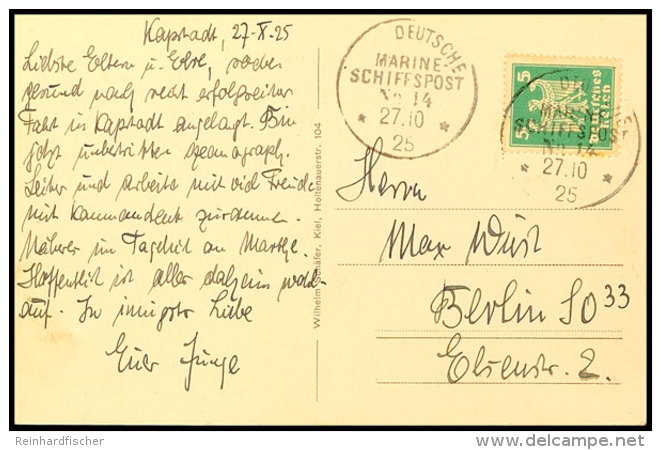 Kapstadt, 27-X-25
Liebste Eltern u. Else, soeben
gesund nach recht erfolgreicher
Fahrt in Kapstadt angelangt. Bin
jetzt unbestritten ozeanograph.
Leiter und arbeite mit viel Freude
mit Kommandant zusammen.
Näheres im Tagebuch an
Hoffentlich ist alles daheim wohl-
auf. In innigster Liebe
Euer Junge
Wilhelm Schäfer, Kiel, Holtenauerstr. 104
DEUTSCHE
MARINE-
SCHIFFSPOST
No 14
* 27.10 *
25
5 5
Deutsches
Reich
DEU
MARINE
SCHIFFSPOST
No 14
* 27.10 *
25
Herrn
Max Wüst
Berlin SO 33
Elsenstr. 2.
Reinhardfischer
delcampe.net